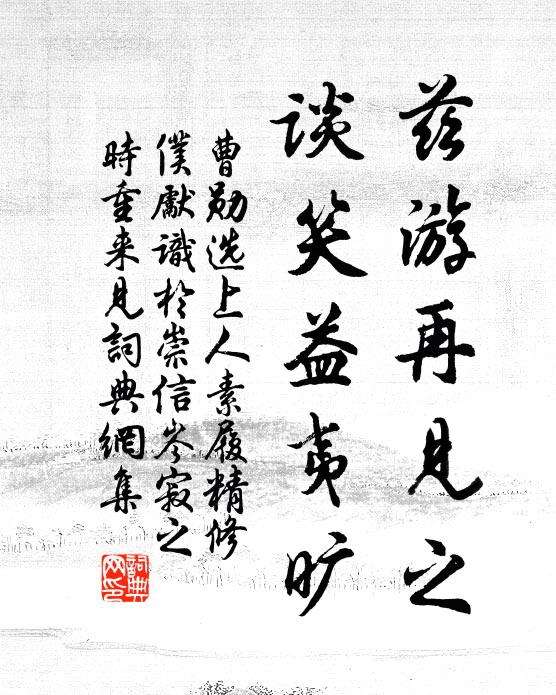 兹游再见之
谈笑益夷旷
曹勋选上人素履精修
仆献识于崇信岑寂之
時重来见詞典網集
詞典
网印